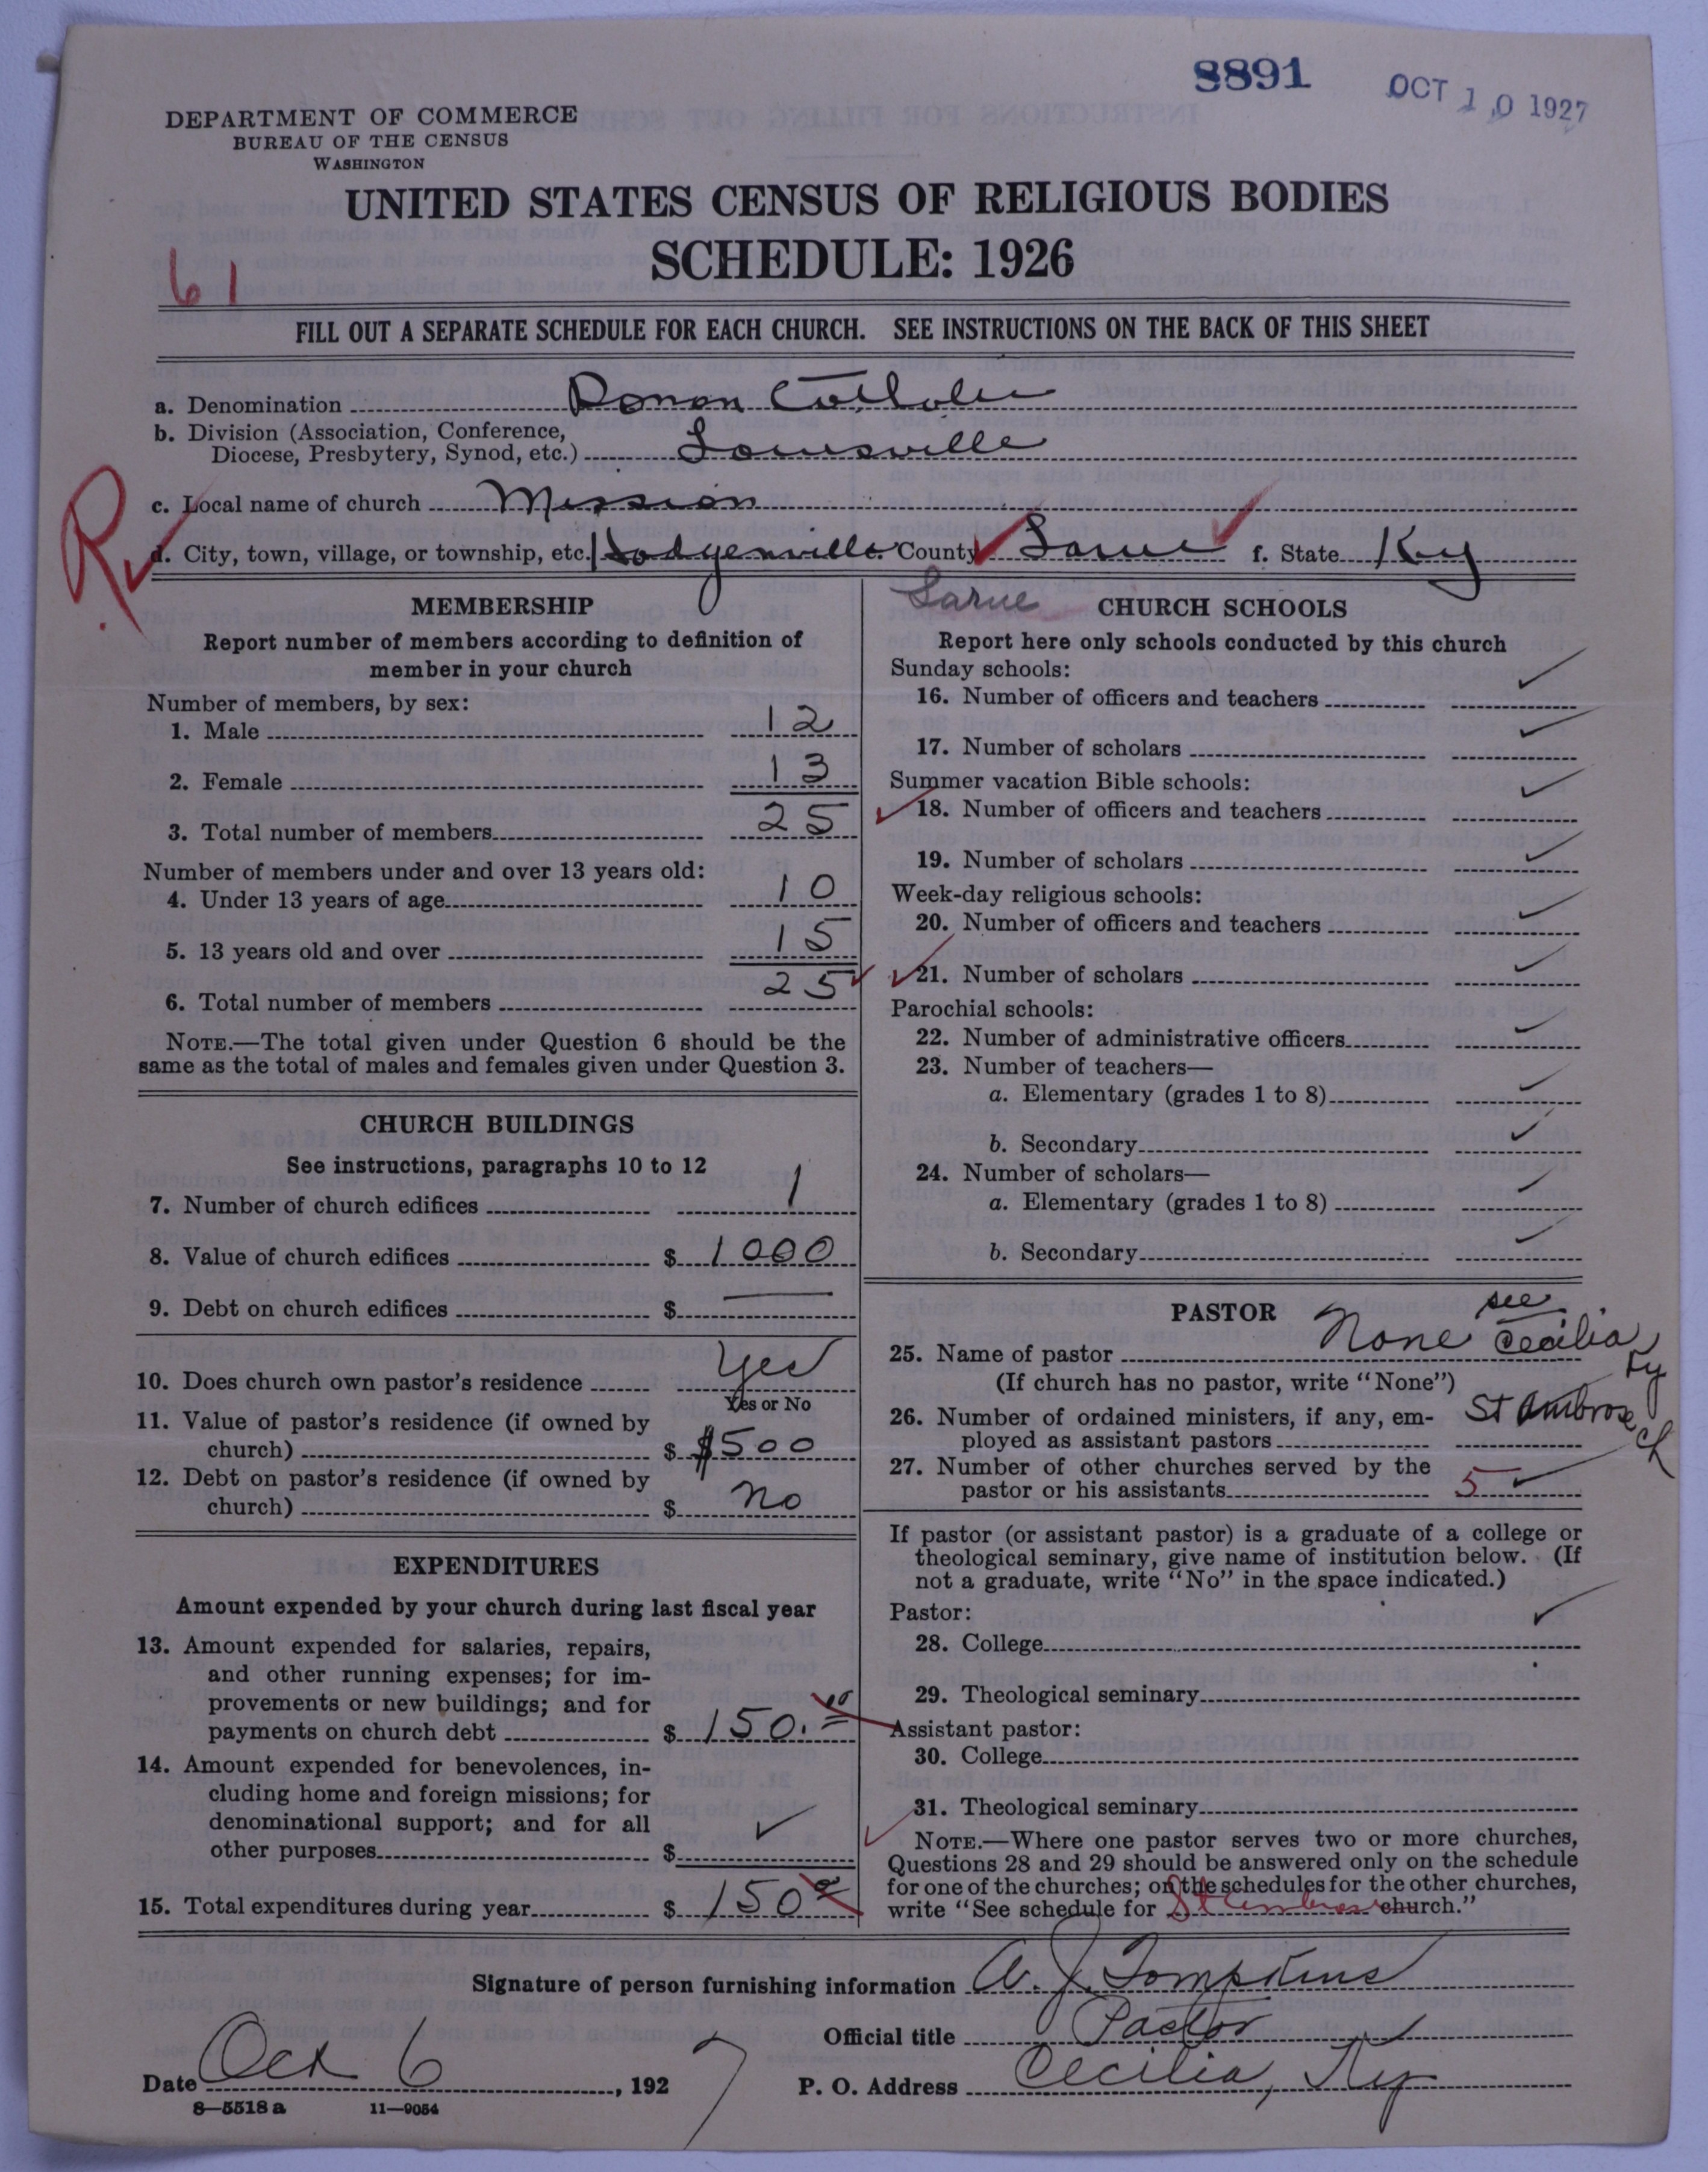 8891
OCT 10 1927
DEPARTMENT OF COMMERCE
BUREAU OF THE CENSUS
WASHINGTON
UNITED STATES CENSUS OF RELIGIOUS BODIES
SCHEDULE: 1926
61
FILL OUT A SEPARATE SCHEDULE FOR EACH CHURCH. SEE INSTRUCTIONS ON THE BACK OF THIS SHEET
a. Denomination Roman Catholic
b. Division (Association, Conference,
Diocese, Presbytery, Synod, etc.) Louisville
c. Local name of church Mission
R
d. City, town, village, or township, etc. Hodgenville e. County Larue f. State Ky
Larue
MEMBERSHIP
Report number of members according to definition of
member in your church
Number of members, by sex:
1. Male 12
2. Female 13
3. Total number of members 25
Number of members under and over 13 years old:
4. Under 13 years of age 10
5. 13 years old and over 15
6. Total number of members 25
NOTE.—The total given under Question 6 should be the
same as the total of males and females given under Question 3.
CHURCH BUILDINGS
See instructions, paragraphs 10 to 12
7. Number of church edifices 1
8. Value of church edifices $ 1000
9. Debt on church edifices $ —
10. Does church own pastor's residence Yes
Yes or No
11. Value of pastor's residence (if owned by
church) $ $500
12. Debt on pastor's residence (if owned by
church) $ no
EXPENDITURES
Amount expended by your church during last fiscal year
13. Amount expended for salaries, repairs,
and other running expenses; for im-
provements or new buildings; and for
payments on church debt $ 150.00
14. Amount expended for benevolences, in-
cluding home and foreign missions; for
denominational support; and for all
other purposes $ ✓
15. Total expenditures during year $ 150
CHURCH SCHOOLS
Report here only schools conducted by this church
Sunday schools:
16. Number of officers and teachers ✓
17. Number of scholars ✓
Summer vacation Bible schools:
18. Number of officers and teachers ✓
19. Number of scholars ✓
Week-day religious schools:
20. Number of officers and teachers ✓
21. Number of scholars ✓
Parochial schools:
22. Number of administrative officers ✓
23. Number of teachers—
a. Elementary (grades 1 to 8) ✓
b. Secondary ✓
24. Number of scholars—
a. Elementary (grades 1 to 8) ✓
b. Secondary ✓
PASTOR
see
25. Name of pastor None Cecilia
Ky
(If church has no pastor, write "None")
26. Number of ordained ministers, if any, em- St Ambrose
ployed as assistant pastors ch
27. Number of other churches served by the
pastor or his assistants 5 ✓
If pastor (or assistant pastor) is a graduate of a college or
theological seminary, give name of institution below. (If
not a graduate, write "No" in the space indicated.)
Pastor:
28. College ✓
29. Theological seminary
Assistant pastor:
30. College
31. Theological seminary
NOTE.—Where one pastor serves two or more churches,
Questions 28 and 29 should be answered only on the schedule
for one of the churches; on the schedules for the other churches,
write "See schedule for St Ambrose church."
Signature of person furnishing information A. J. Tompkins
Official title Pastor
Date Oct 6, 1927 P. O. Address Cecilia, Ky
8—5518 a 11—9054